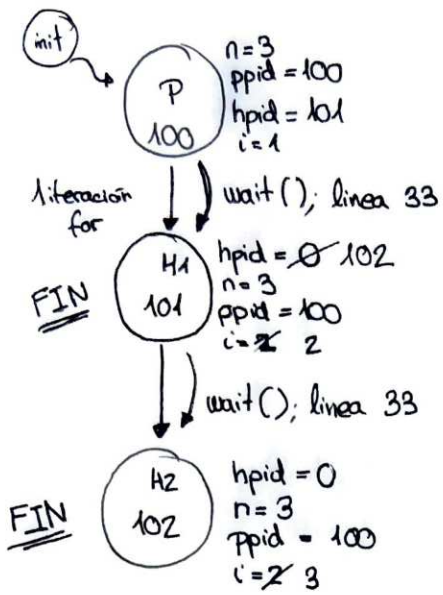 init
P
100
n=3
ppid=100
hpid=101
i=1
1iteración
for
wait(); linea 33
FIN
H1
101
hpid=0 102
n=3
ppid=100
i=1 2
wait(); linea 33
FIN
H2
102
hpid=0
n=3
ppid=100
i=2 3